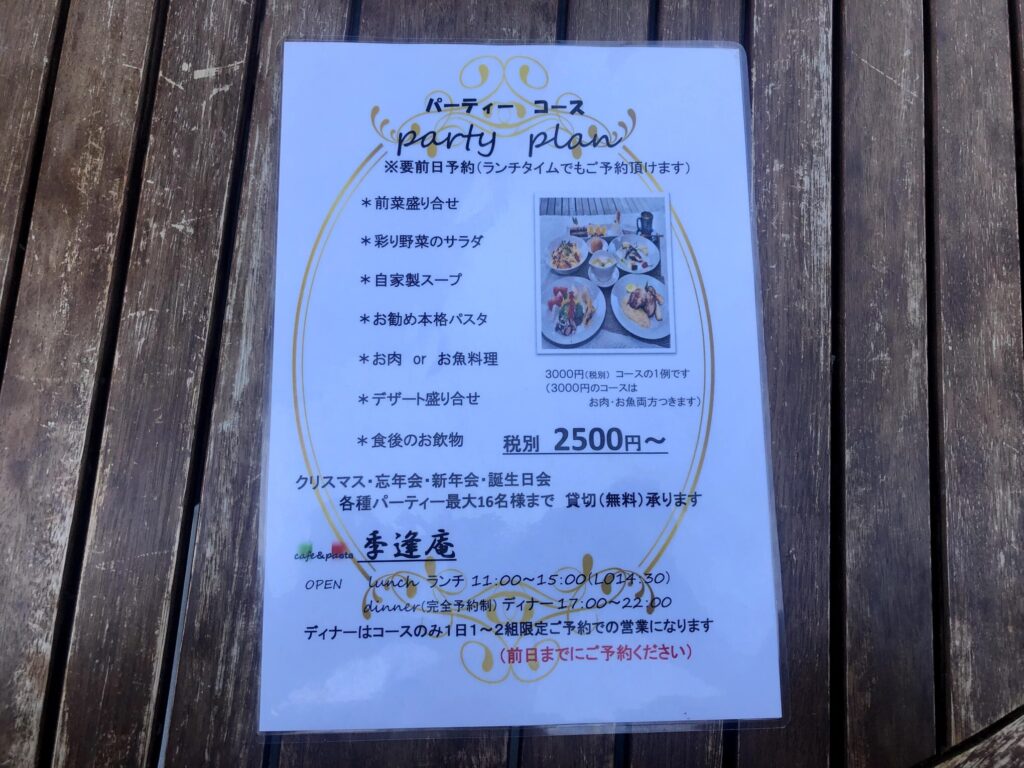 パーティー コース
party plan
※要前日予約(ランチタイムでもご予約頂けます)
＊前菜盛り合せ
＊彩り野菜のサラダ
＊自家製スープ
＊お勧め本格パスタ
＊お肉 or お魚料理
＊デザート盛り合せ
＊食後のお飲物
3000円(税別) コースの1例です
(3000円のコースは
お肉・お魚両方つきます)
税別 2500円～
クリスマス・忘年会・新年会・誕生日会
各種パーティー最大16名様まで 貸切(無料)承ります
cafe&pasta 季逢庵
OPEN lunch ランチ 11:00～15:00(LO14:30)
dinner(完全予約制) ディナー 17:00～22:00
ディナーはコースのみ1日1～2組限定ご予約での営業になります
(前日までにご予約ください)